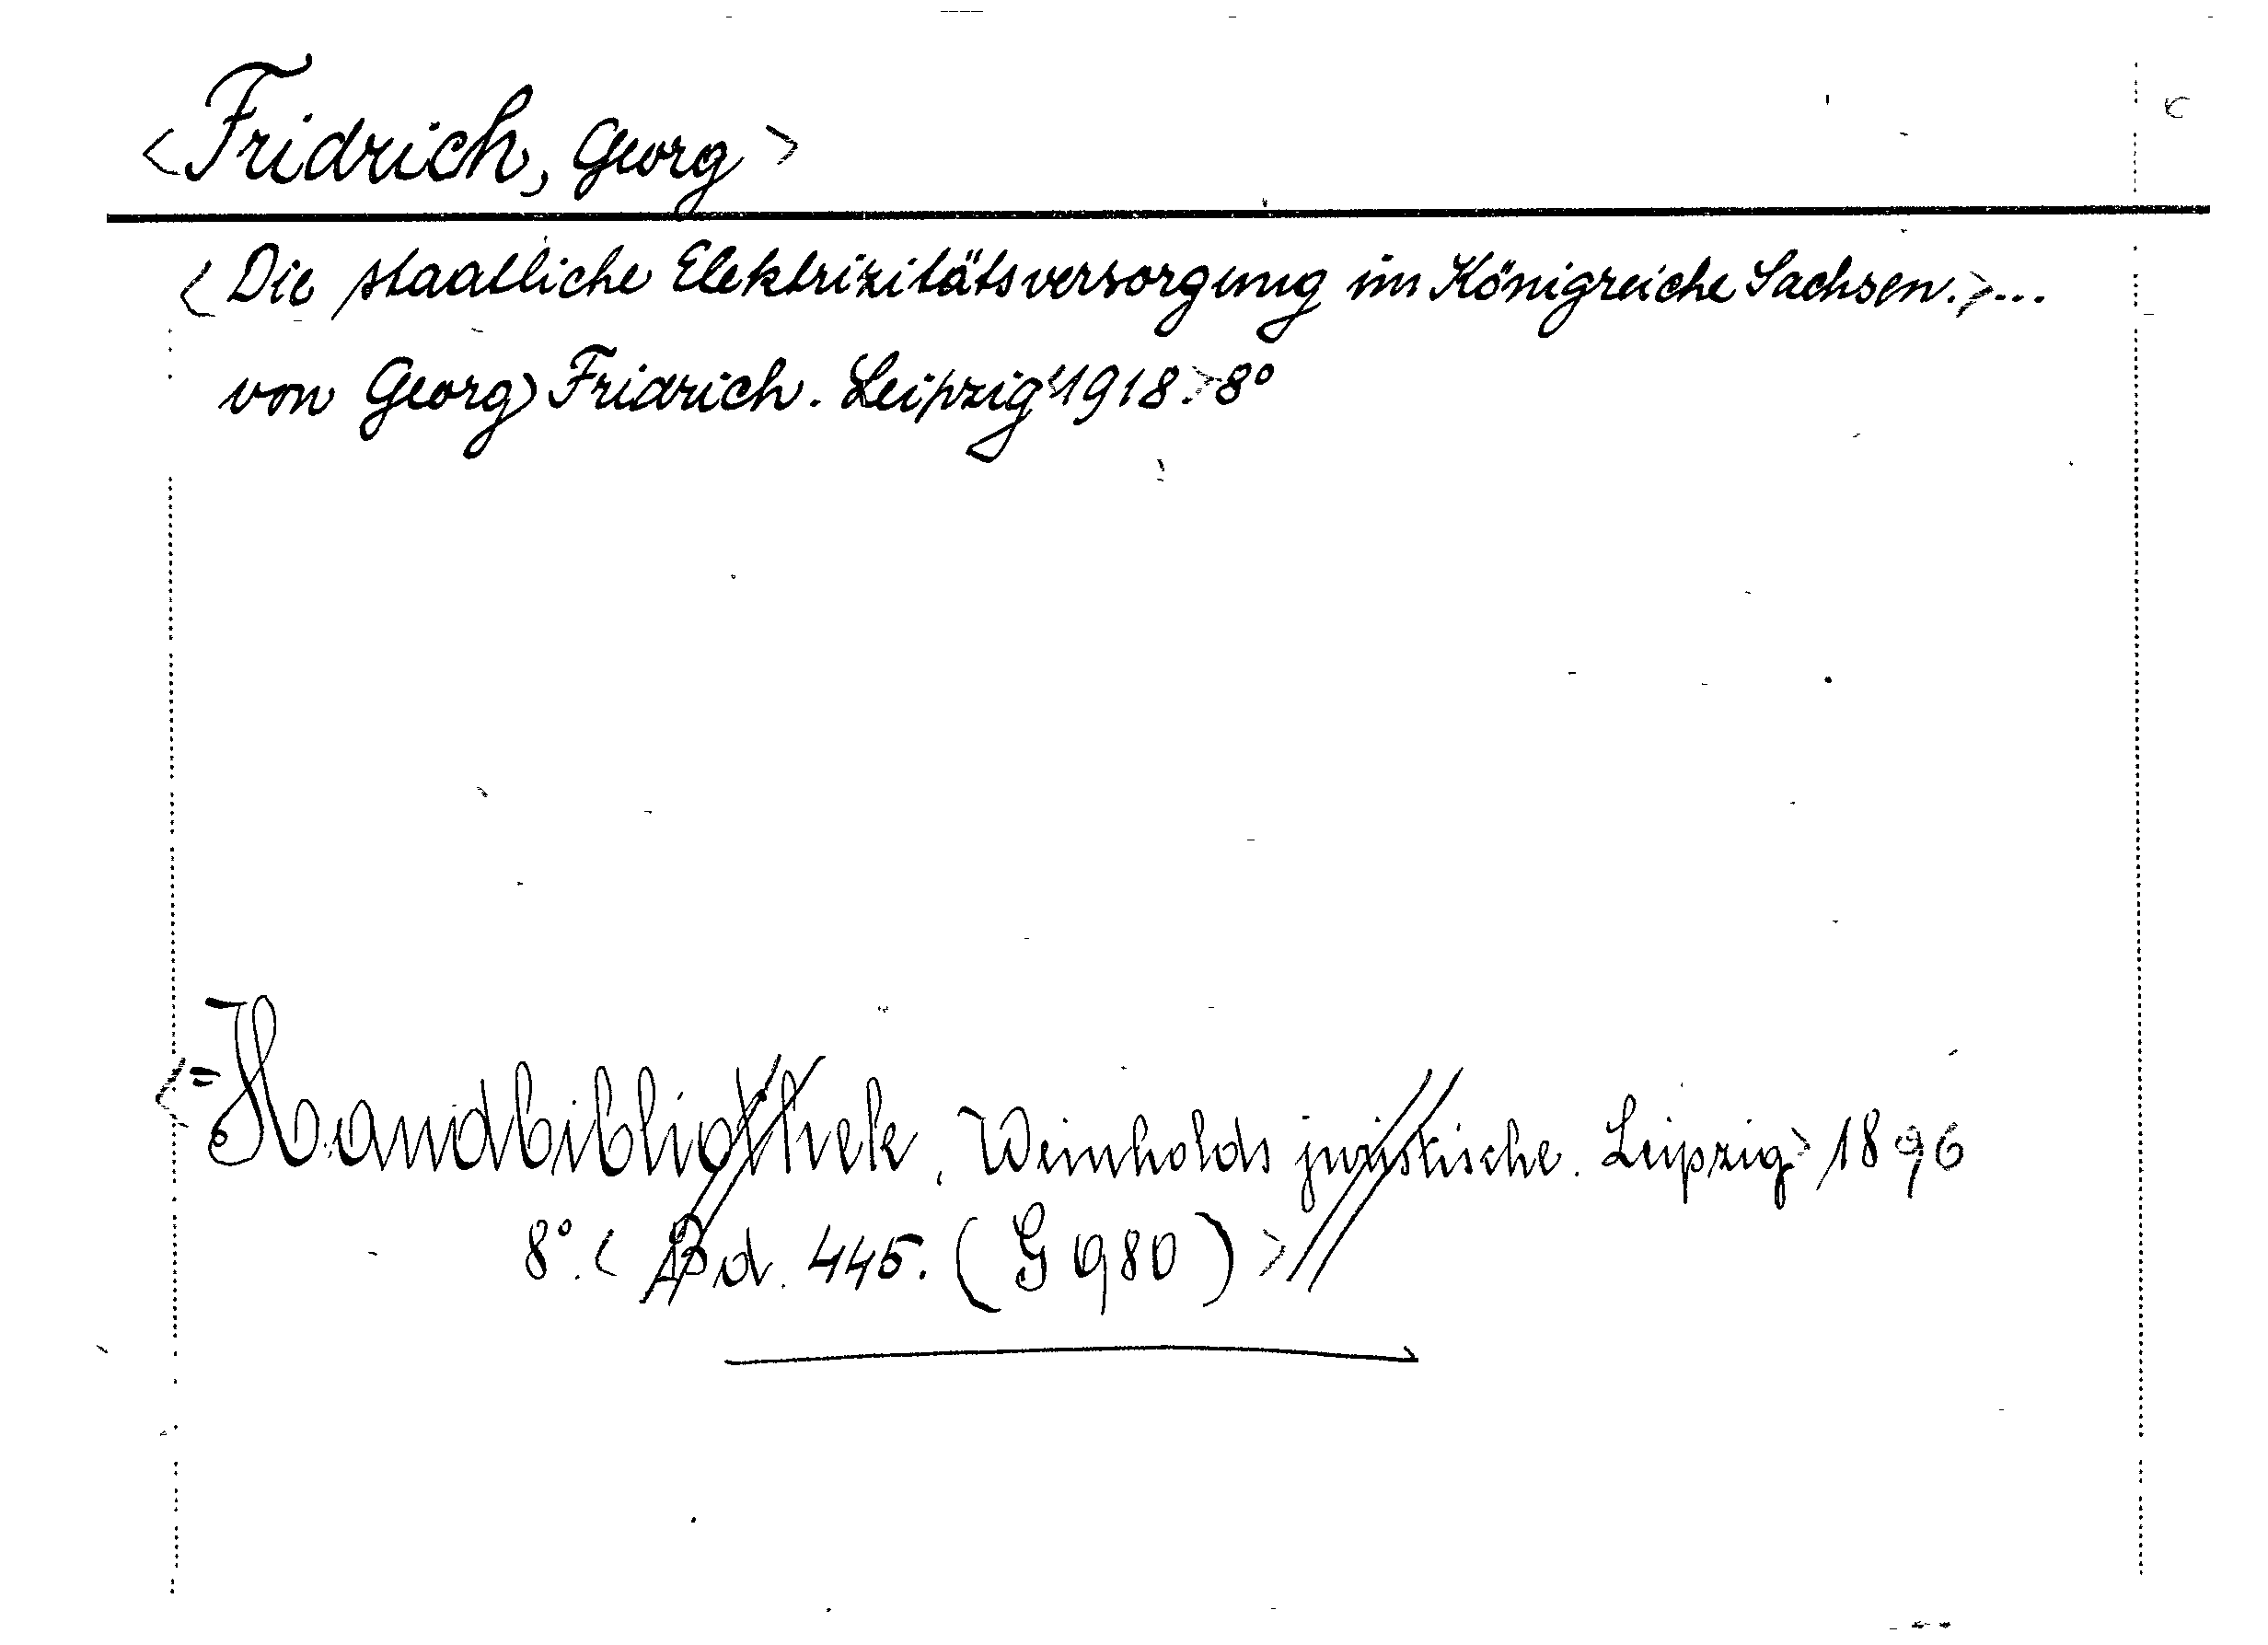 <Fridrich, Georg>
<Die staatliche Elektrizitätsversorgung im Königreiche Sachsen.>...
von Georg Fridrich. Leipzig<1918.>8°
<= Handbibliothek, Weinholds juristische. Leipzig> 1896
8°. < Bd. 445. (G 980) >